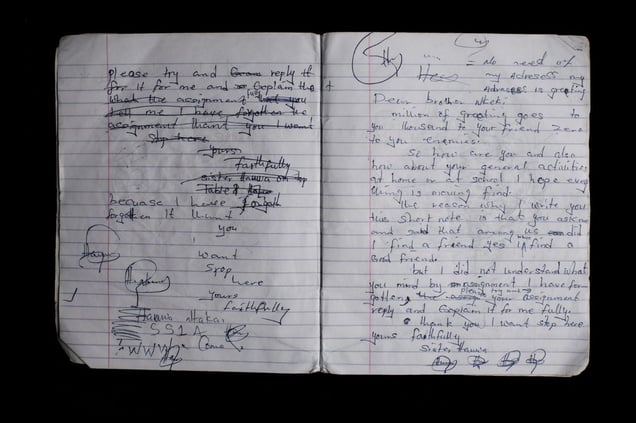 please try and reply it
for it for me and Explain the
what the assignment that you
tell me I have forgotten the
assignment thank you I want
Stop here
yours
faithfully
sister Hauwa
because I have
forgoten it thank
you
I
want
Stop
here
yours
faithfully
Hauwa Ntakai
SS1A
WWW. Come
= No need of
my Adresess my
Adresess is greating
Dear brother Ntaki
million of greating goes to
you thousand to your friend Zero
to you enemies.
So how are you and also
how about your general activities
at home or at school I hope every
thing is moving find.
The reason why I write you
this short note is that you ask me
and said that among us did
I find a friend yes I find a
Good friend.
but I did not understand what
you mind by assignment I have forn
gotten, please try and your assignment
reply and Explain it to me fully.
thank you I want stop here
yours faithfully
Sister Hauwa